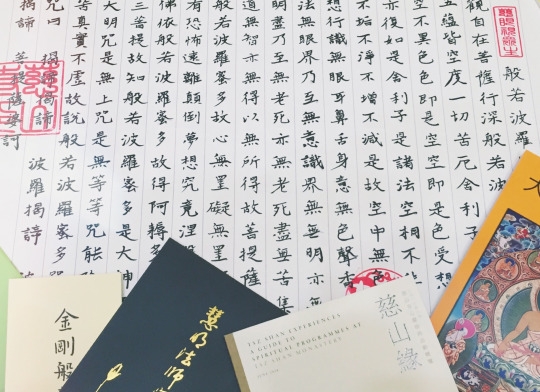 般若波羅
觀自在菩薩行深般若波
五蘊皆空度一切苦厄舍利子
空不異色色即是空空即是色受想
亦復如是舍利子是諸法空相不
不垢不淨不增不減是故空中無色
想行識無眼耳鼻舌身意無色聲香
無眼界乃至無意識界無無明亦
乃至無老死亦無老死盡無苦集
道無智亦無得以無所得故菩提薩
般若波羅蜜多故心無罣礙無罣
有恐怖遠離顛倒夢想究竟涅
佛依般若波羅蜜多故得阿耨
三菩提故知般若波羅蜜多是大神
大明咒是無上咒是無等等咒能
苦真實不虛故說般若波羅蜜多
咒曰 揭諦揭諦 波羅揭諦 波
揭諦 菩提薩婆訶
金剛般
慧明法師
慈山緣
TSZ SHAN EXPERIENCES
A GUIDE TO
SPIRITUAL PROGRAMMES AT
TSZ SHAN MONASTERY